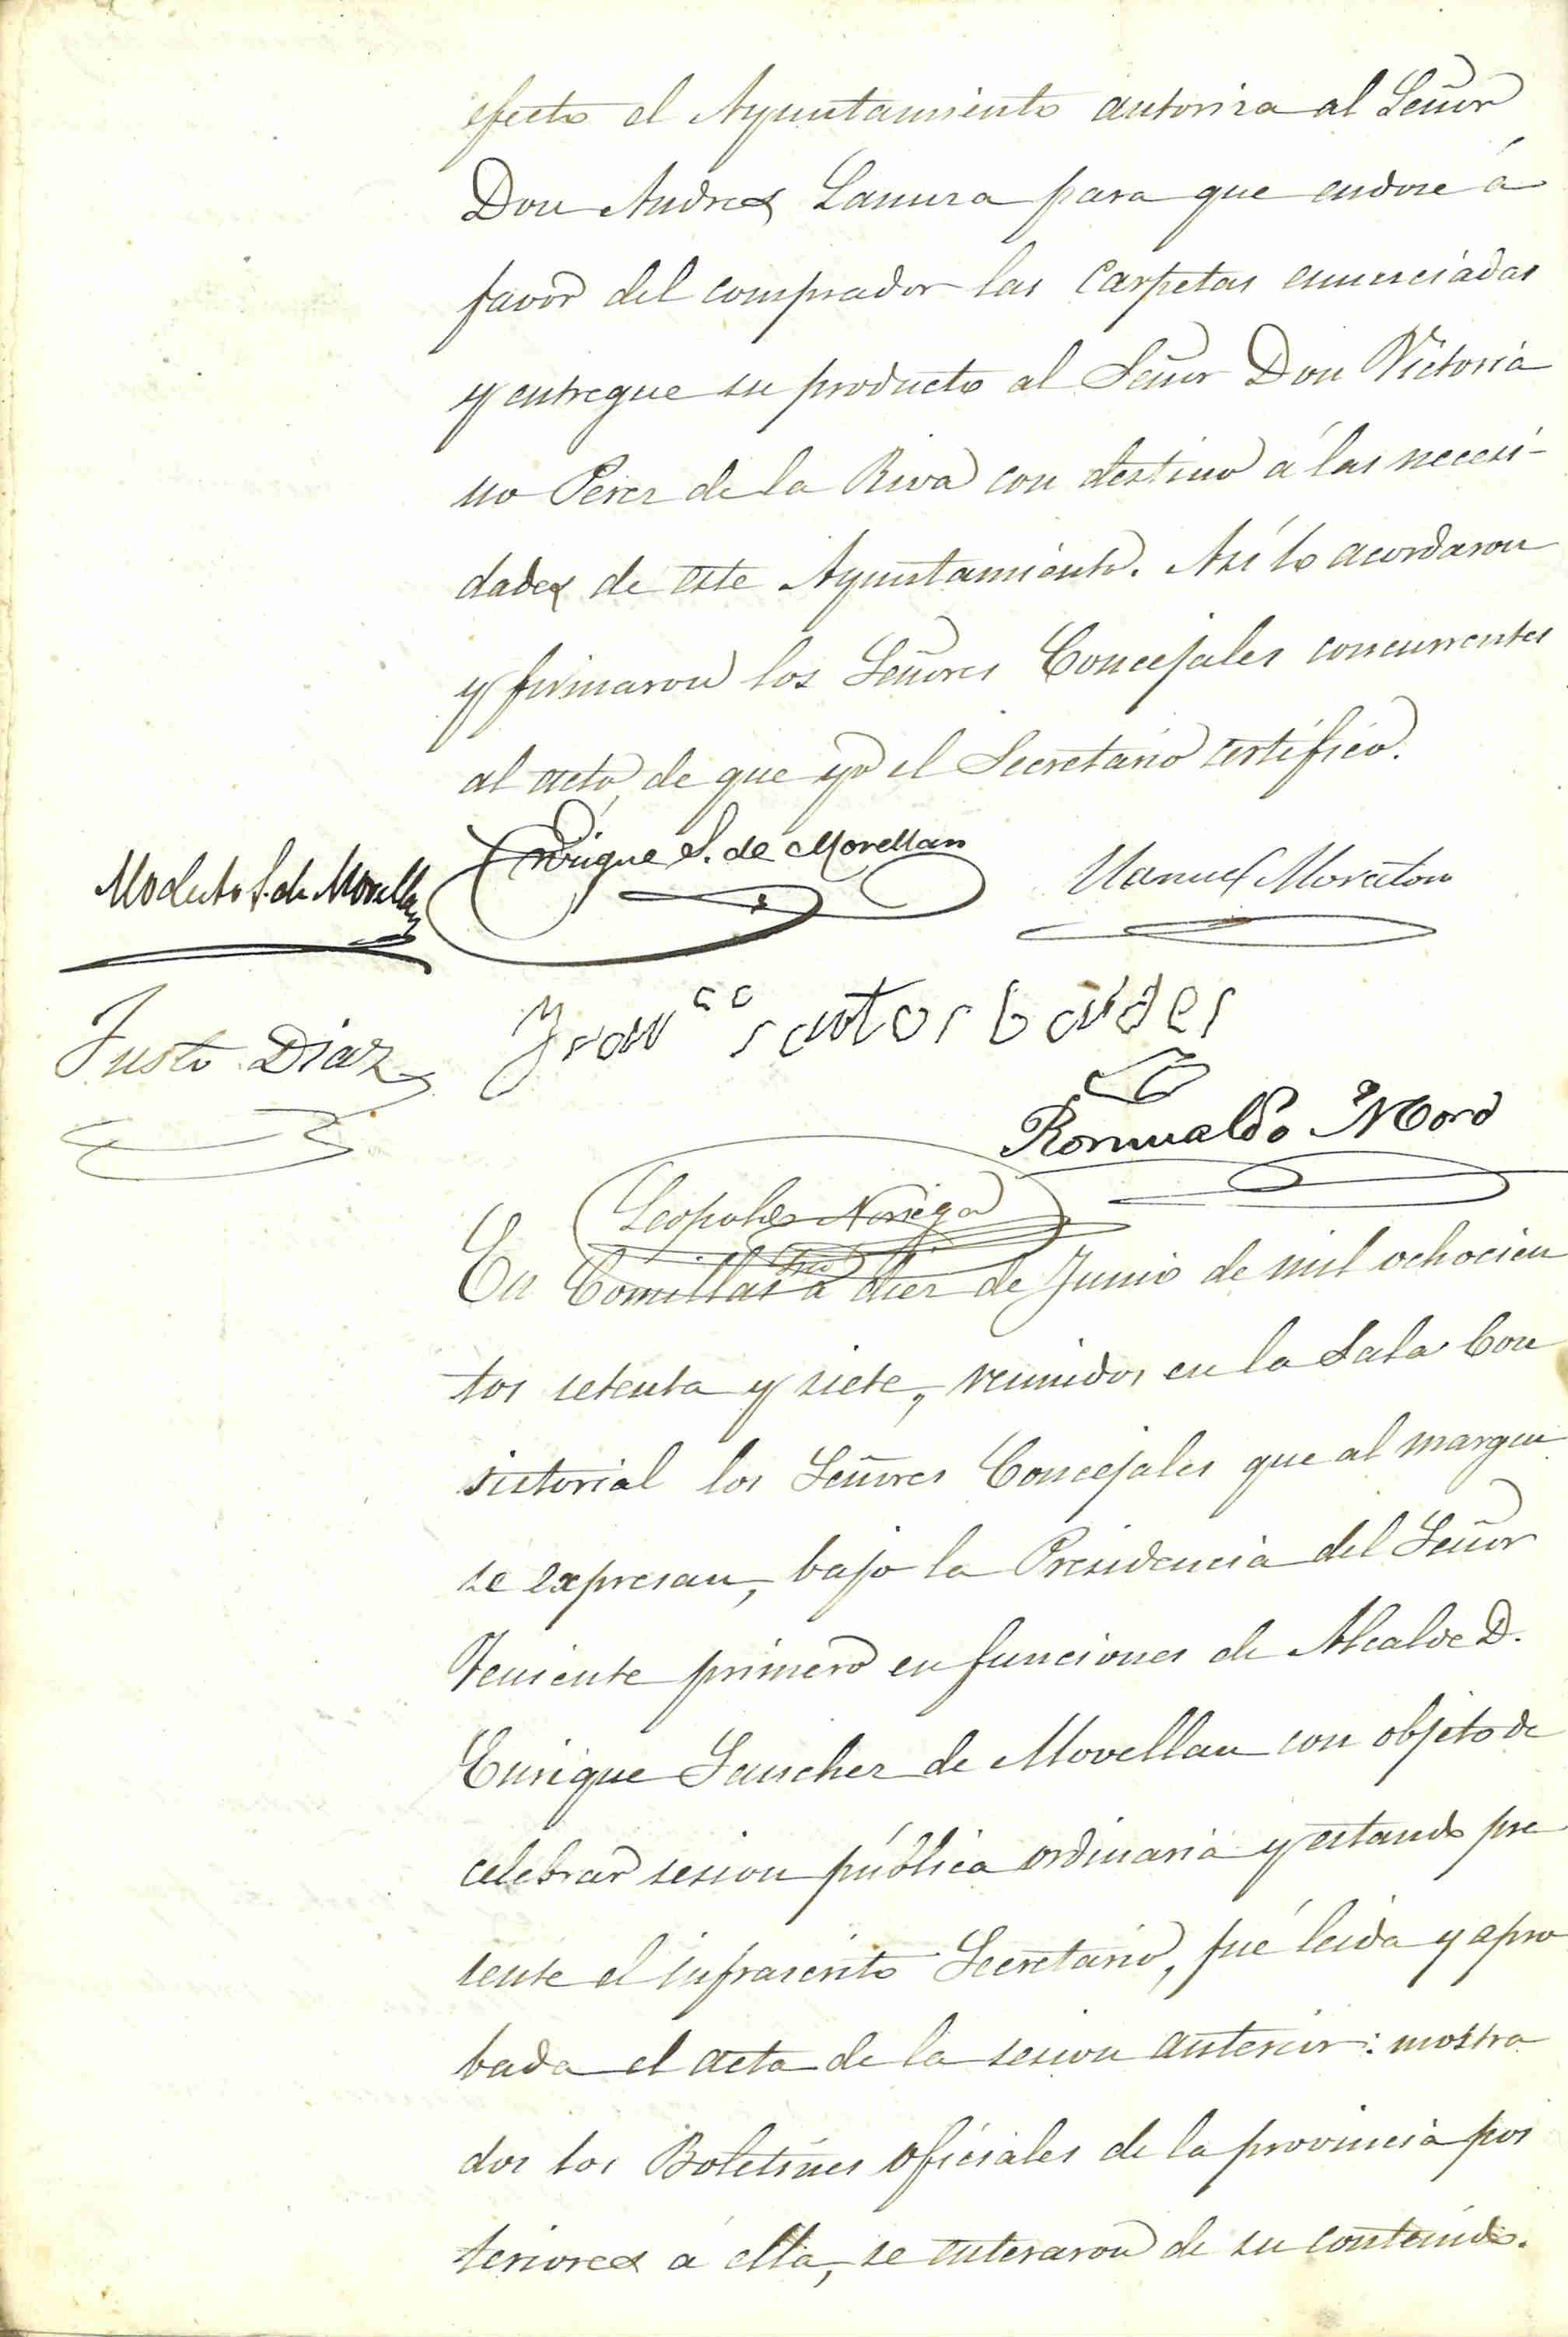 efecto el Ayuntamiento autoriza al Señor
Don Andres Lamuza para que endose á
favor del comprador las Carpetas enunciadas
y entregue su producto al Señor Don Victoria
no Perez de la Riva con destino á las necesi-
dades de este Ayuntamiento. Así lo acordaron
y firmaron los Señores Concejales concurrentes
al acto, de que yo el Secretario certifico.
Modesto S. de Movellan
Enrique S. de Movellan
Manuel Moraton
Justo Diaz
Fran.co santos
Romualdo Moro
Leopoldo Noriega
Srio
En Comillas á diez de Junio de mil ochocien
tos setenta y siete, reunidos en la Sala Con
sistorial los Señores Concejales que al margen
se expresan, bajo la Presidencia del Señor
Teniente primero en funciones de Alcalde D.
Enrique Sanchez de Movellan con objeto de
celebrar sesion pública ordinaria y estando pre
sente el infrascrito Secretario, fué leida y apro
bada el acta de la sesion anterior: mostra
dos los Boletines oficiales de la provincia pos
teriores á ella, se enteraron de su contenido.